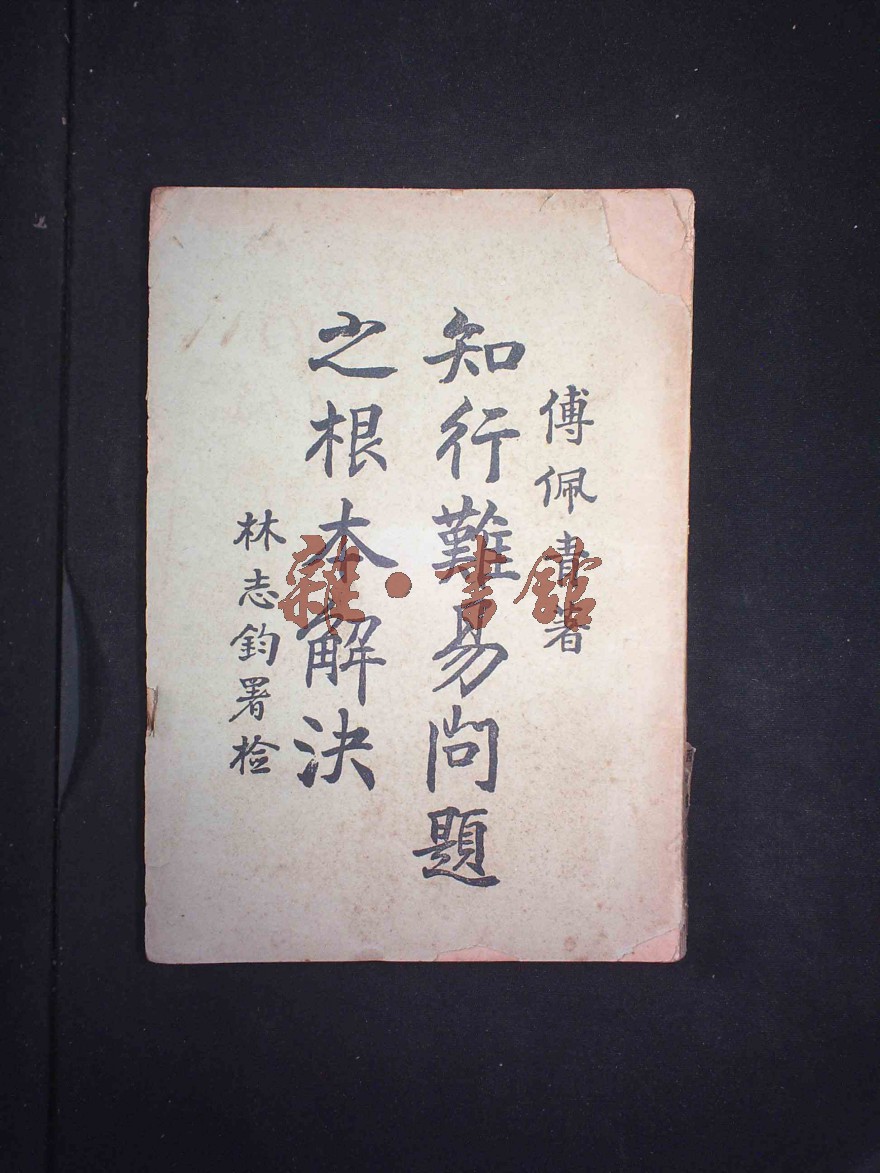 傅佩青著
知行難易問題
之根本解決
林志鈞署檢
雜·書館